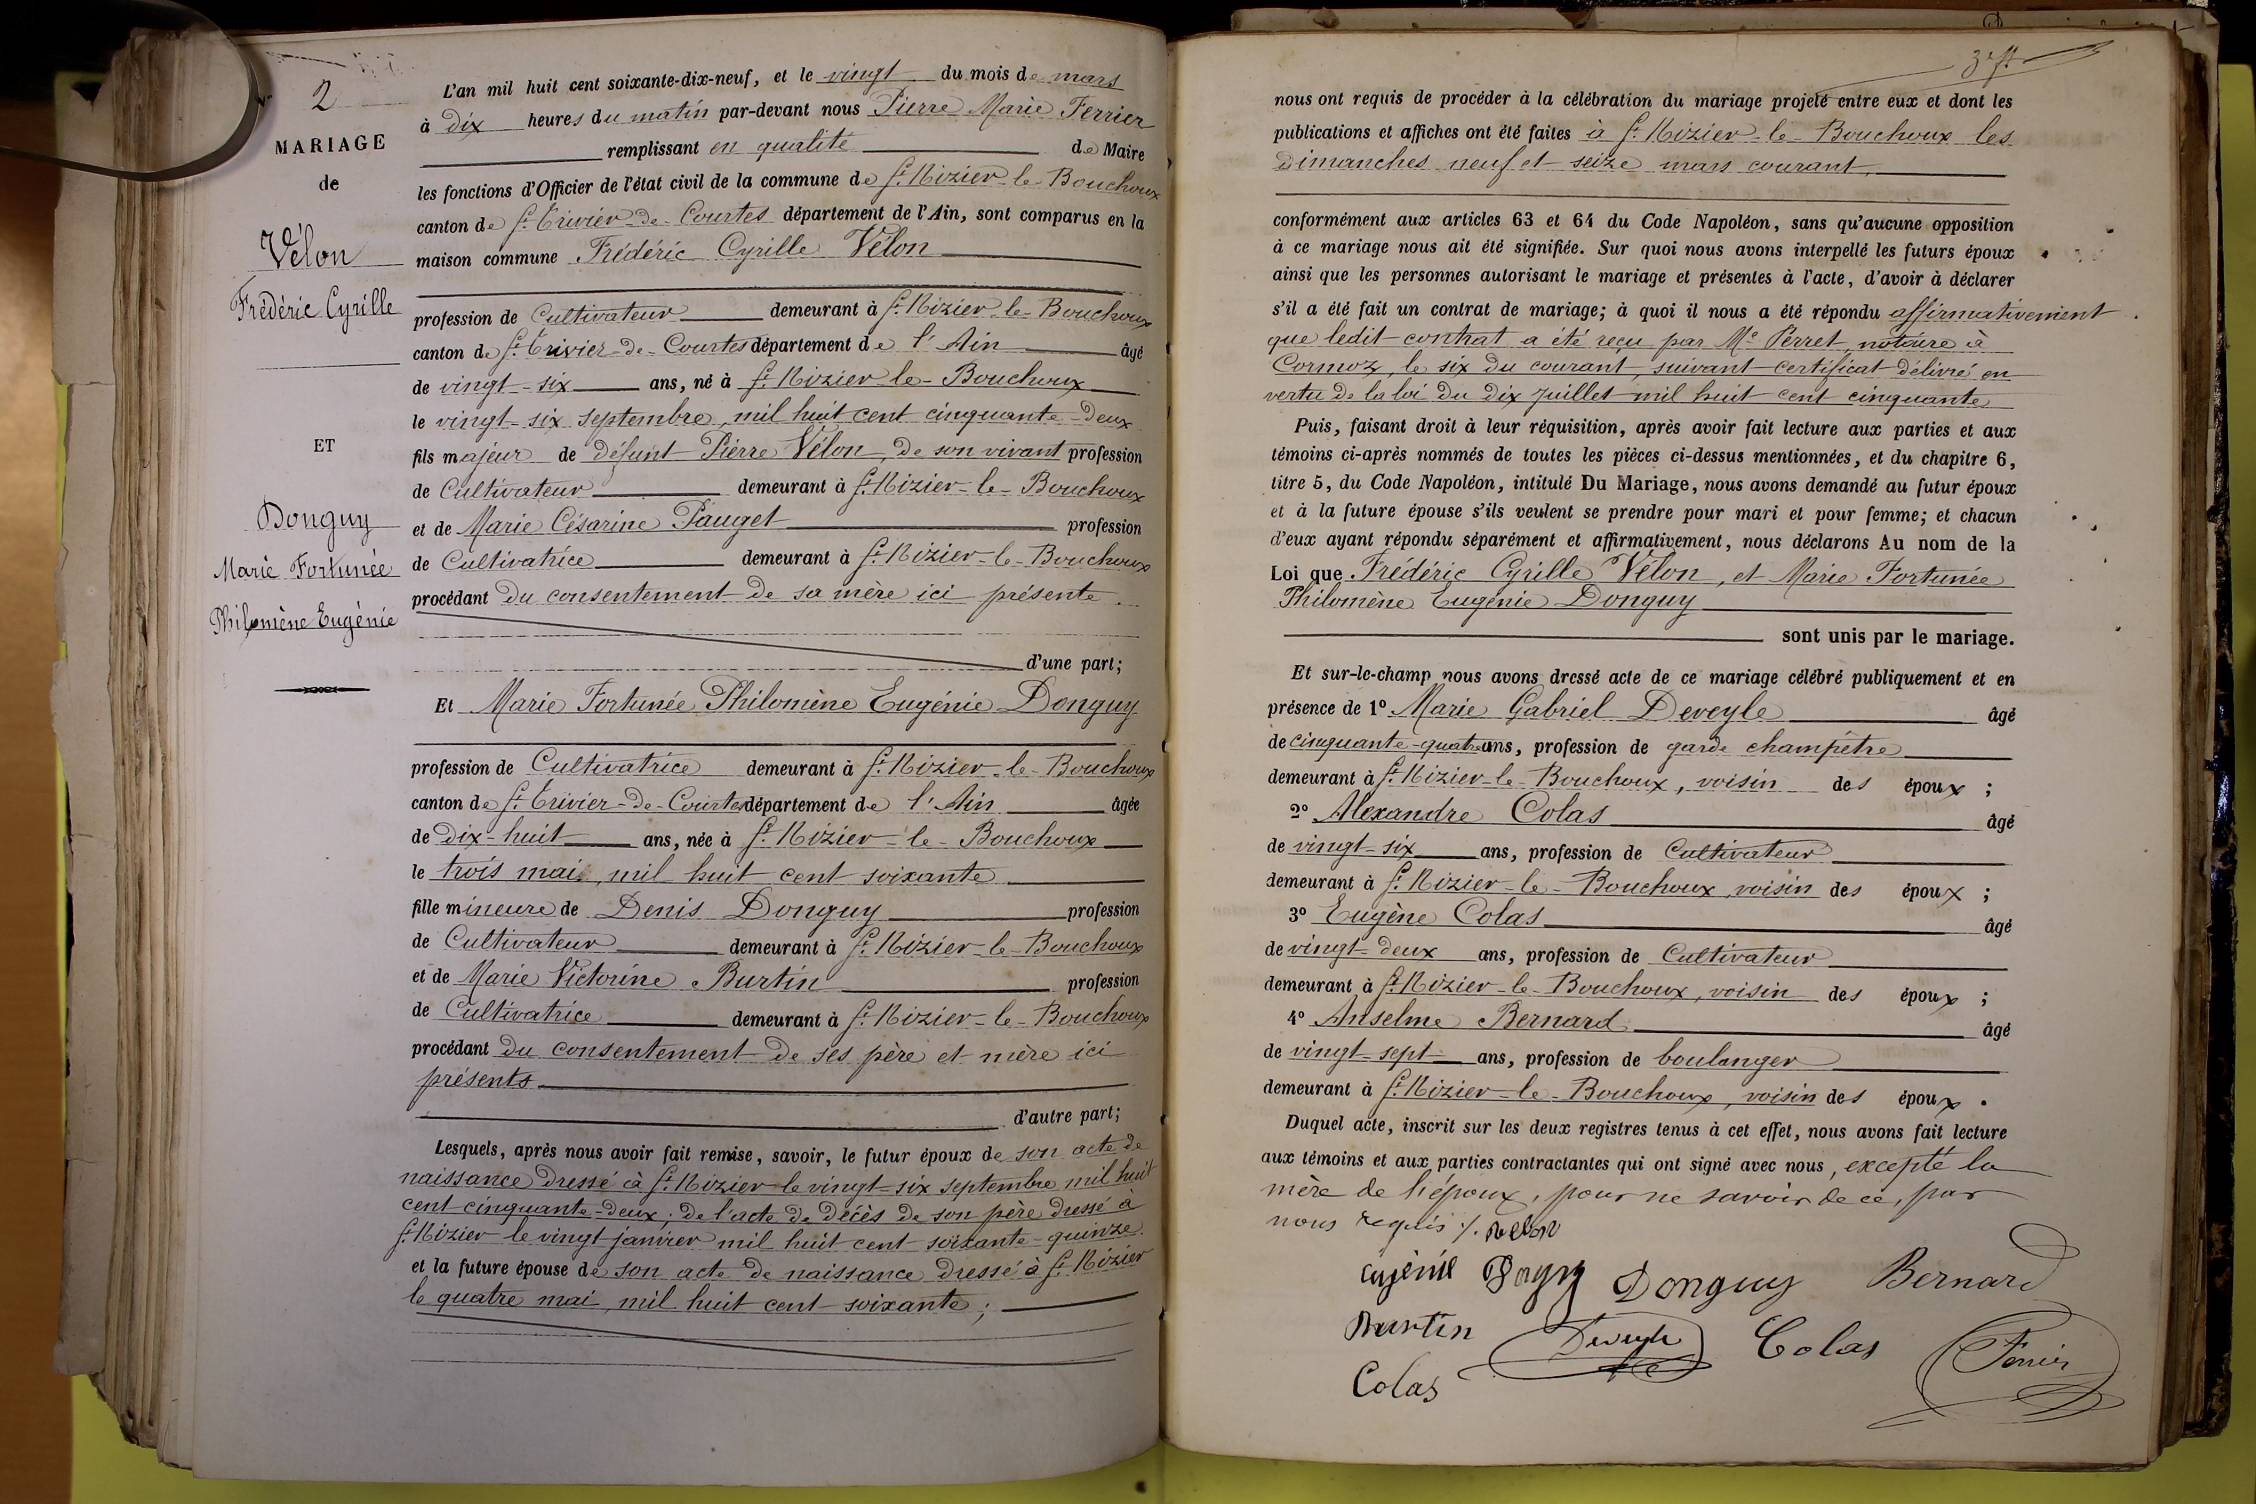 N° 2
MARIAGE
de
Vélon
Frédéric Cyrille
ET
Donguy
Marie Fortunée
Philomène Eugénie
L'an mil huit cent soixante-dix-neuf, et le vingt du mois de mars
à dix heures du matin par-devant nous Pierre Marie Ferrier
remplissant en qualité de Maire
les fonctions d'Officier de l'état civil de la commune de St. Nizier-le-Bouchoux
canton de St. Trivier-de-Courtes département de l'Ain, sont comparus en la
maison commune Frédéric Cyrille Vélon
profession de Cultivateur demeurant à St. Nizier-le-Bouchoux
canton de St. Trivier-de-Courtes département de l'Ain âgé
de vingt-six ans, né à St. Nizier-le-Bouchoux
le vingt-six septembre, mil huit cent cinquante-deux
fils majeur de défunt Pierre Vélon, de son vivant profession
de Cultivateur demeurant à St. Nizier-le-Bouchoux
et de Marie Césarine Pauget profession
de Cultivatrice demeurant à St. Nizier-le-Bouchoux
procédant du consentement de sa mère ici présente.
d'une part;
Et Marie Fortunée Philomène Eugénie Donguy
profession de Cultivatrice demeurant à St. Nizier-le-Bouchoux
canton de St. Trivier-de-Courtes département de l'Ain âgée
de dix-huit ans, née à St. Nizier-le-Bouchoux
le trois mai, mil huit cent soixante
fille mineure de Denis Donguy profession
de Cultivateur demeurant à St. Nizier-le-Bouchoux
et de Marie Victorine Burtin profession
de Cultivatrice demeurant à St. Nizier-le-Bouchoux
procédant du consentement de ses père et mère ici
présents
d'autre part;
Lesquels, après nous avoir fait remise, savoir, le futur époux de son acte de
naissance dressé à St. Nizier le vingt-six septembre mil huit
cent cinquante-deux; de l'acte de décès de son père dressé à
St. Nizier le vingt janvier mil huit cent soixante-quinze.
et la future épouse de son acte de naissance dressé à St. Nizier
le quatre mai, mil huit cent soixante;
nous ont requis de procéder à la célébration du mariage projeté entre eux et dont les
publications et affiches ont été faites à St. Nizier-le-Bouchoux les
dimanches neuf et seize mars courant,
conformément aux articles 63 et 64 du Code Napoléon, sans qu'aucune opposition
à ce mariage nous ait été signifiée. Sur quoi nous avons interpellé les futurs époux
ainsi que les personnes autorisant le mariage et présentes à l'acte, d'avoir à déclarer
s'il a été fait un contrat de mariage; à quoi il nous a été répondu affirmativement
que ledit contrat a été reçu par Me Perret, notaire à
Cormoz, le six du courant, suivant certificat délivré en
vertu de la loi du dix juillet mil huit cent cinquante
Puis, faisant droit à leur réquisition, après avoir fait lecture aux parties et aux
témoins ci-après nommés de toutes les pièces ci-dessus mentionnées, et du chapitre 6,
titre 5, du Code Napoléon, intitulé Du Mariage, nous avons demandé au futur époux
et à la future épouse s'ils veulent se prendre pour mari et pour femme; et chacun
d'eux ayant répondu séparément et affirmativement, nous déclarons Au nom de la
Loi que Frédéric Cyrille Vélon, et Marie Fortunée
Philomène Eugénie Donguy
sont unis par le mariage.
Et sur-le-champ nous avons dressé acte de ce mariage célébré publiquement et en
présence de 1° Marie Gabriel Deveyle âgé
de cinquante-quatre ans, profession de garde champêtre
demeurant à St. Nizier-le-Bouchoux, voisin des époux;
2° Alexandre Colas âgé
de vingt-six ans, profession de Cultivateur
demeurant à St. Nizier-le-Bouchoux, voisin des époux;
3° Eugène Colas âgé
de vingt-deux ans, profession de Cultivateur
demeurant à St. Nizier-le-Bouchoux, voisin des époux;
4° Anselme Bernard âgé
de vingt-sept ans, profession de boulanger
demeurant à St. Nizier-le-Bouchoux, voisin des époux.
Duquel acte, inscrit sur les deux registres tenus à cet effet, nous avons fait lecture
aux témoins et aux parties contractantes qui ont signé avec nous, excepté la
mère de l'époux, pour ne savoir de ce, par
nous requis ./. Velon
Eugénie Dongy Donguy Bernard
Burtin Deveyle Colas Ferrier
Colas